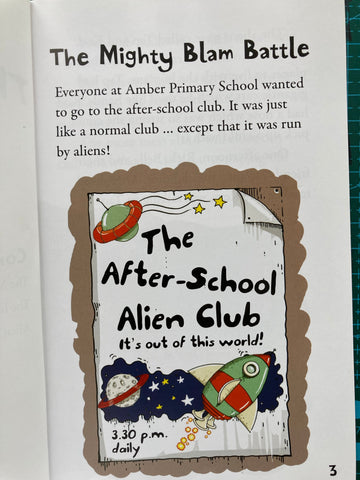 The Mighty Blam Battle
Everyone at Amber Primary School wanted
to go to the after-school club. It was just
like a normal club ... except that it was run
by aliens!
The
After-School
Alien Club
It's out of this world!
3.30 p.m.
daily
3